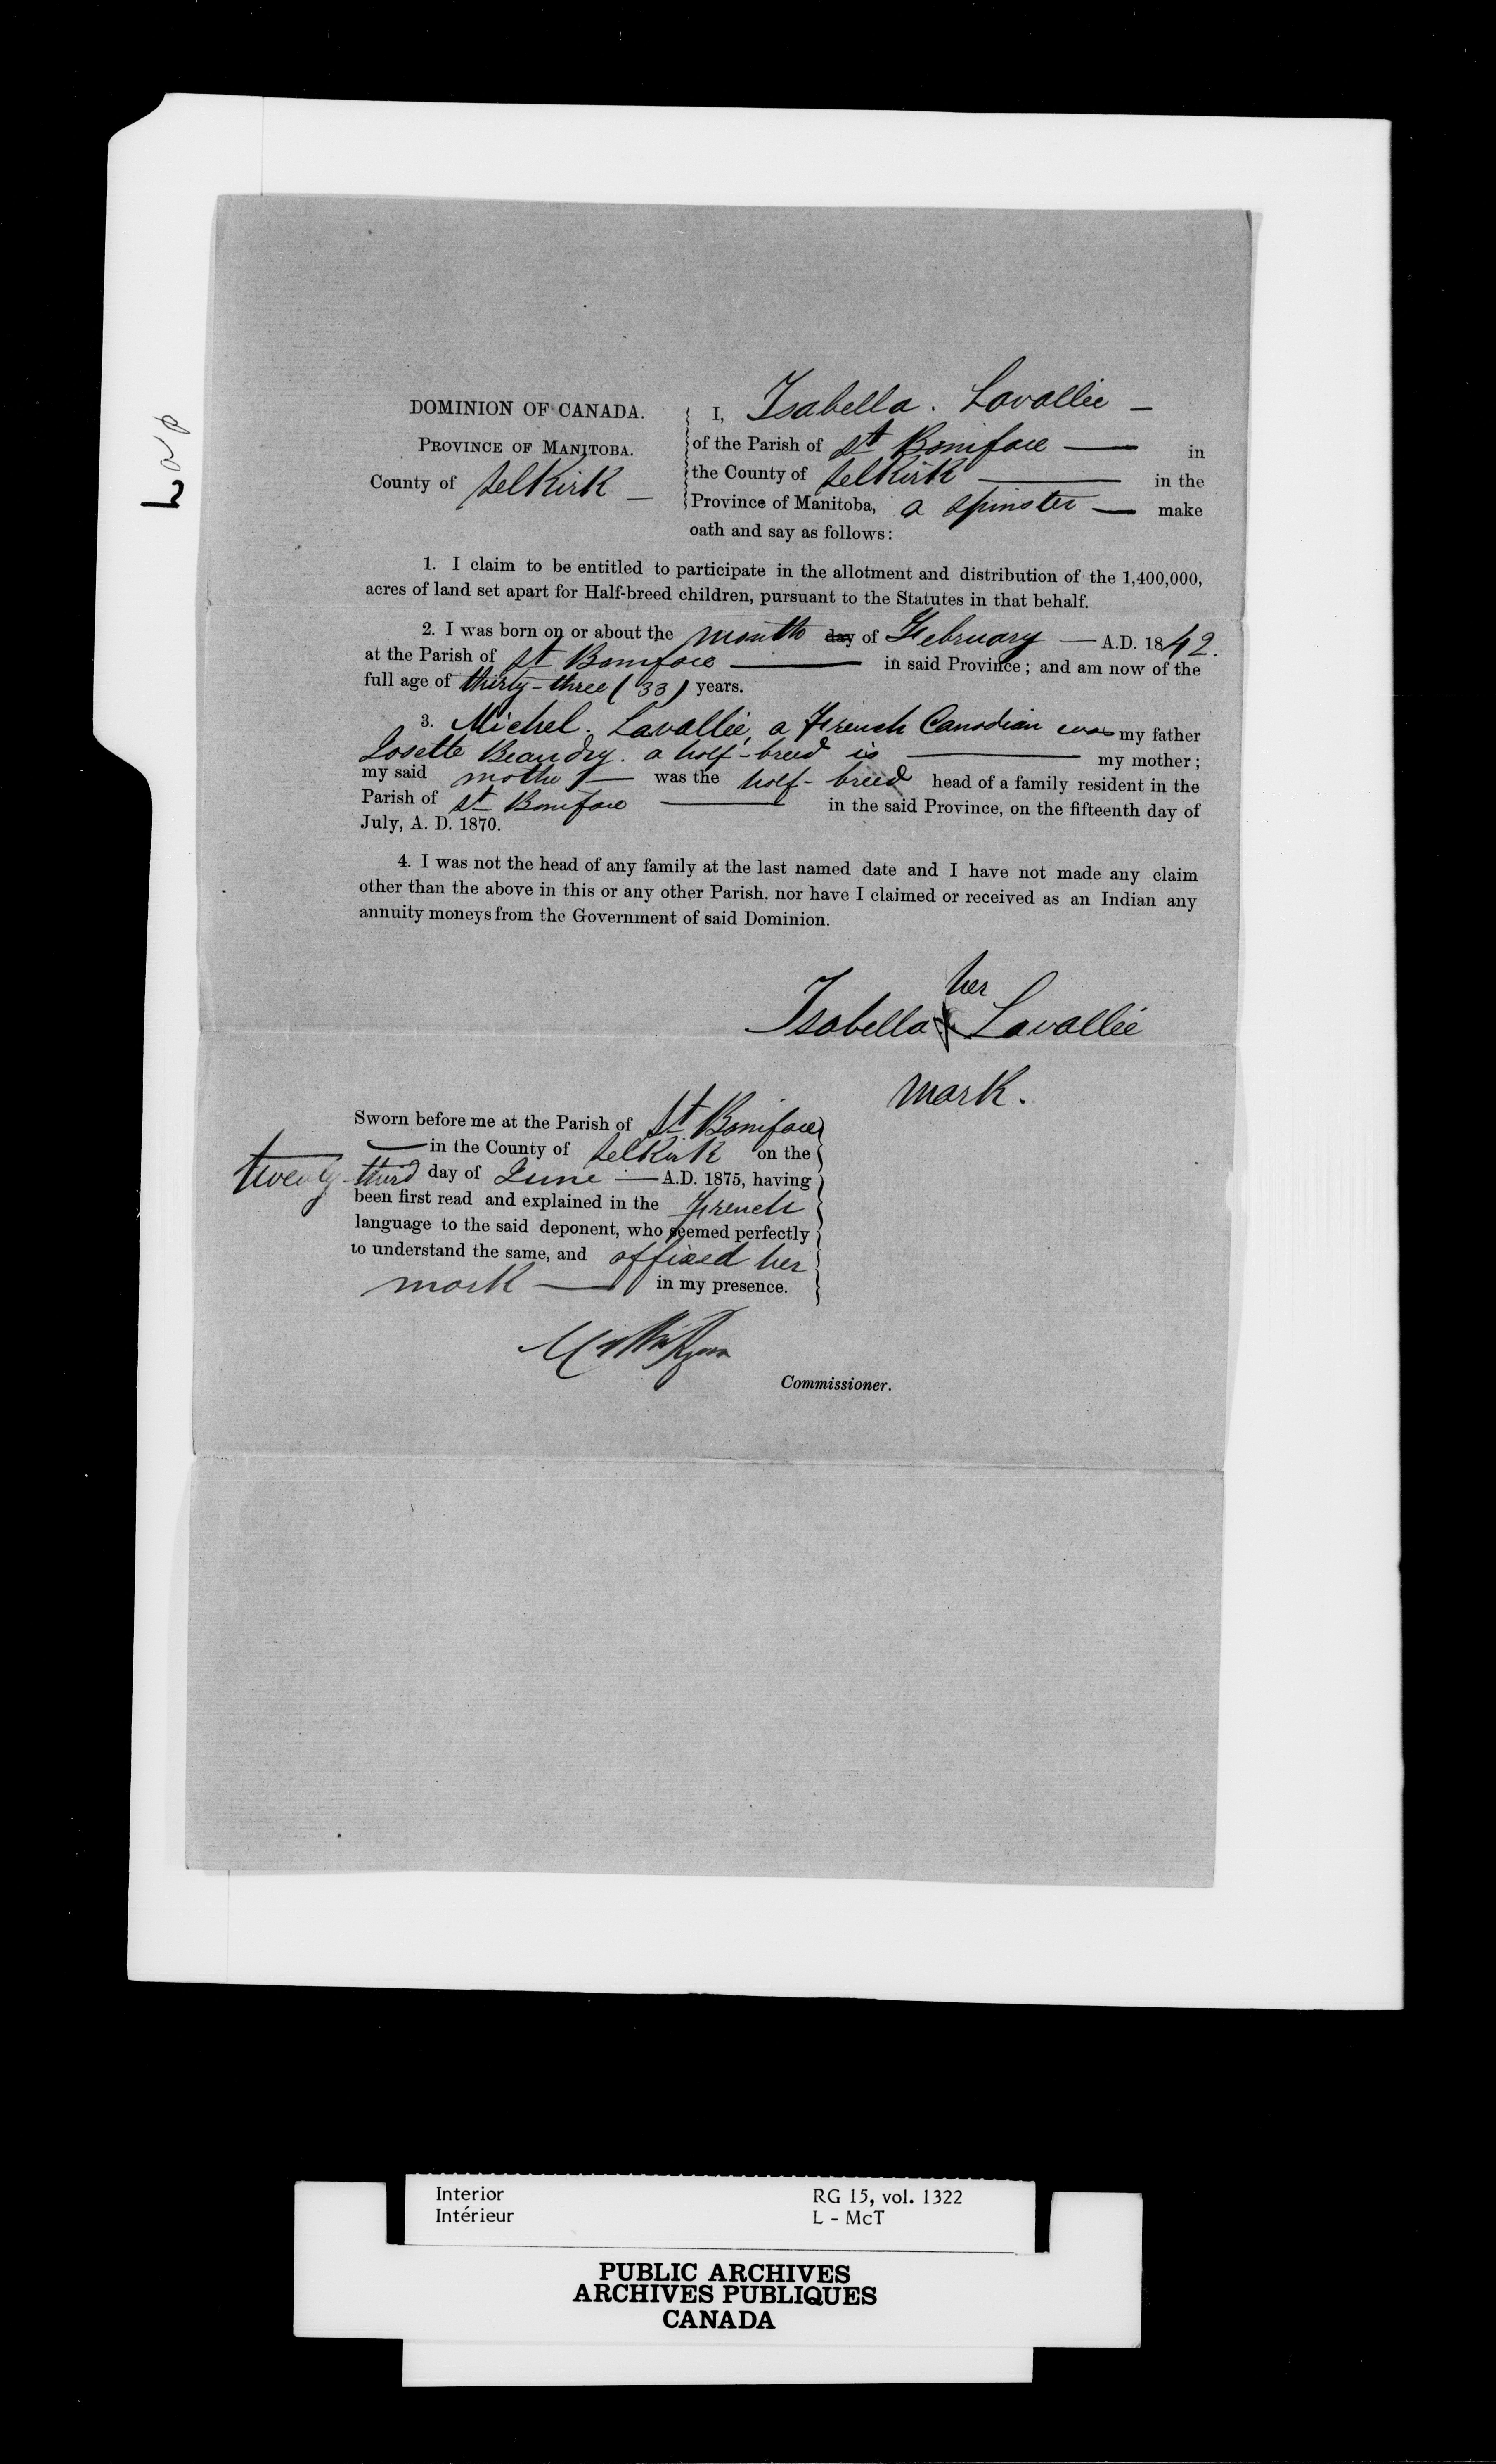 Lav
DOMINION OF CANADA.
PROVINCE OF MANITOBA.
County of Selkirk —
I, Isabella. Lavallée —
of the Parish of St Boniface — in
the County of Selkirk — in the
Province of Manitoba, a Spinster — make
oath and say as follows:
1. I claim to be entitled to participate in the allotment and distribution of the 1,400,000,
acres of land set apart for Half-breed children, pursuant to the Statutes in that behalf.
2. I was born on or about the month day of February — A.D. 1842.
at the Parish of St Boniface — in said Province; and am now of the
full age of thirty-three (33) years.
3. Michel. Lavallée, a French Canadian was my father
Josette Beaudry. a half-breed is — my mother;
my said mother — was the half-breed head of a family resident in the
Parish of St Boniface — in the said Province, on the fifteenth day of
July, A. D. 1870.
4. I was not the head of any family at the last named date and I have not made any claim
other than the above in this or any other Parish. nor have I claimed or received as an Indian any
annuity moneys from the Government of said Dominion.
her
Isabella X Lavallée
mark.
Sworn before me at the Parish of St Boniface
— in the County of Selkirk on the
twenty-third day of June — A.D. 1875, having
been first read and explained in the French
language to the said deponent, who seemed perfectly
to understand the same, and affixed her
mark — in my presence.
Commissioner.
Interior
Intérieur
RG 15, vol. 1322
L - McT
PUBLIC ARCHIVES
ARCHIVES PUBLIQUES
CANADA